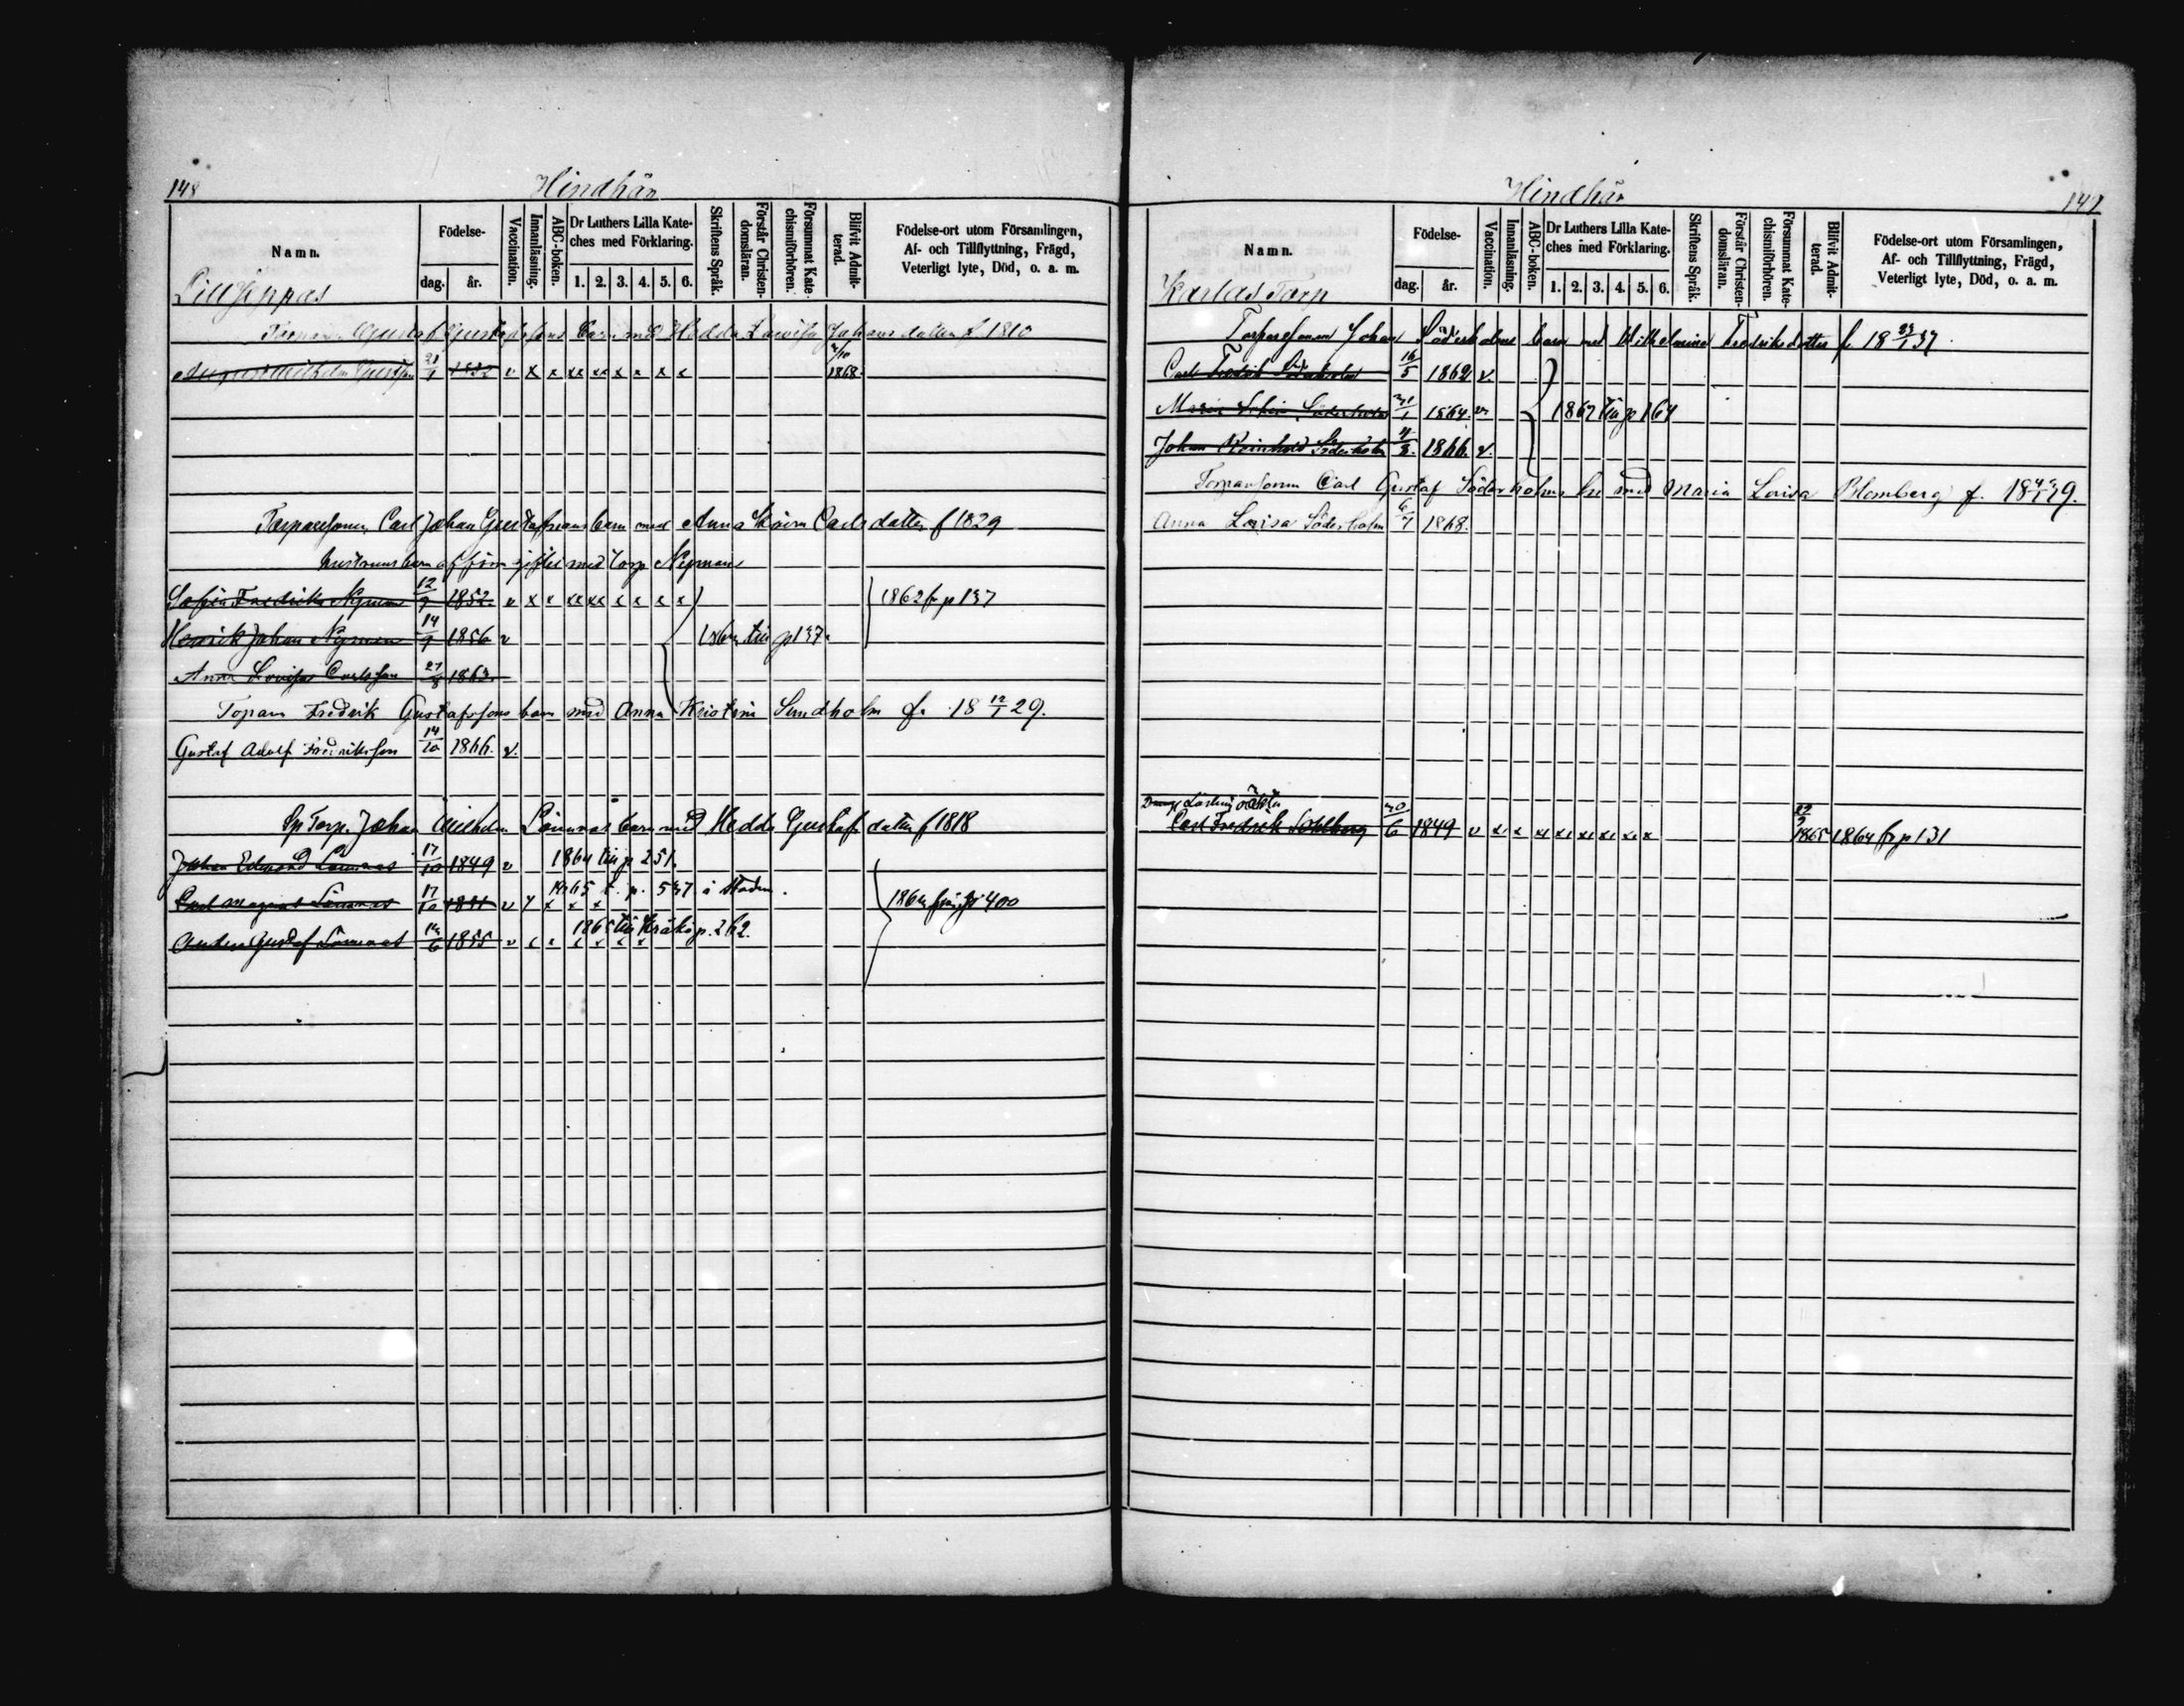 148
Hindhär
Namn.
Födelse-
dag.
år.
Vaccination.
Innanläsning.
ABC-boken.
Dr Luthers Lilla Kate-
ches med Förklaring.
1. 2. 3. 4. 5. 6.
Skriftens Språk.
Förstår Christen-
domsläran.
Försummat Kate-
chismiförhören.
Blifvit Admit-
terad.
Födelse-ort utom Församlingen,
Af- och Tillflyttning, Frägd,
Veterligt lyte, Död, o. a. m.
Lillseppas
Gustafssons barn med Hedda Lovisa Johansdotter f. 1810
August Wilhelm 21/1 1852 v x x xx xx x x x x 1868
Torparesonen Carl Johan Gustafssons barn med Anna Carlsdotter f 1829
hustruns barn af förra giftet med Torp Nyman
Sofia Fredrika Nyman 12/9 1852 v x x xx xx x x x x 1862 fr p 137
Henrik Johan Nyman 14/9 1856 v till p 137
Anna Lovisa Carlsson 27/8 1863
Torparn Fredrik Gustafssons barn med Anna Kristina Sundholm f. 18 12/1 29.
Gustaf Adolf Fredriksson 14/10 1866. v.
Sp Torp. Johan Wilhelm Lönnros barn med Hedda Gustafsdotter f 1818
Johan Edvard 17/10 1849 v 1864 till p 251.
Carl Magnus 17/10 v 1865 t. p. 537 i staden.
1864 från p 400
Anders Gustaf 6 1855 v 1865 till Kråkö p. 262.
Hindhär
149
Namn.
Födelse-
dag.
år.
Vaccination.
Innanläsning.
ABC-boken.
Dr Luthers Lilla Kate-
ches med Förklaring.
1. 2. 3. 4. 5. 6.
Skriftens Språk.
Förstår Christen-
domsläran.
Försummat Kate-
chismiförhören.
Blifvit Admit-
terad.
Födelse-ort utom Församlingen,
Af- och Tillflyttning, Frägd,
Veterligt lyte, Död, o. a. m.
Karlas Torp
Torparesonen Johan Söderholms barn med Wilhelmina Fredriksdotter f. 18 37.
Carl Fredrik Söderholm 16/5 1862 v.
Maria Sofia Söderholm 1864. v. 1867 till p 164
Johan Reinhold Söderholm 1866. v.
Torparesonen Carl Gustaf Söderholms bn med Maria Lovisa Blomberg f. 18 39.
Anna Lovisa Söderholm 1868.
oäkta
Carl Fredrik Sohlberg 30/6 1849 v x x xx xx xx x x x 1865 1864 fr p 131